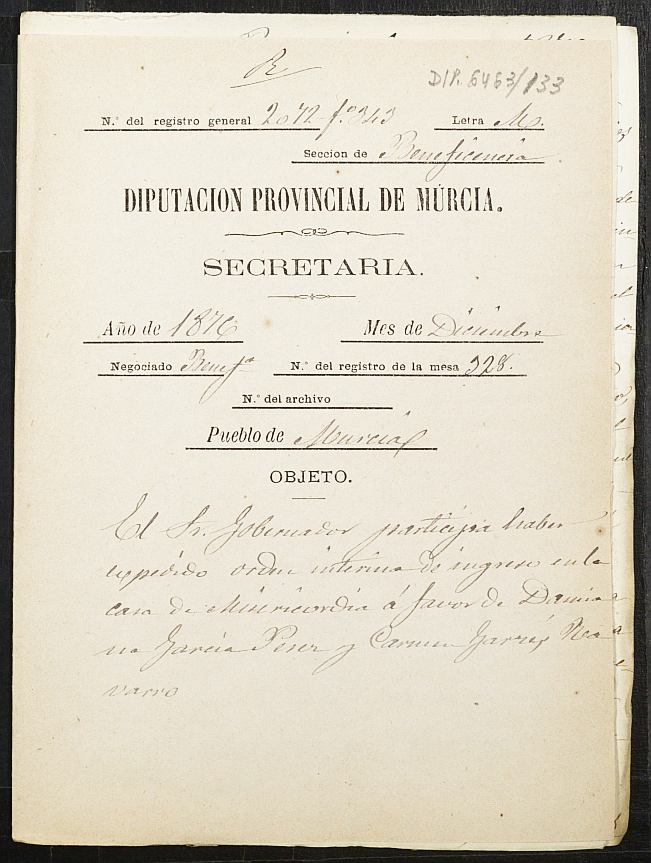 DIP. 6463/133
N.º del registro general 2072 fº 343 Letra M.
Seccion de Beneficencia
DIPUTACION PROVINCIAL DE MURCIA.
SECRETARIA.
Año de 1876 Mes de Diciembre
Negociado Benefª N.º del registro de la mesa 328.
N.º del archivo
Pueblo de Murcia
OBJETO.
El Sr. Gobernador participa haber
expedido orden interina de ingreso en la
casa de Misericordia á favor de Damia
na Garcia Perez y Carmen Garres Na
varro